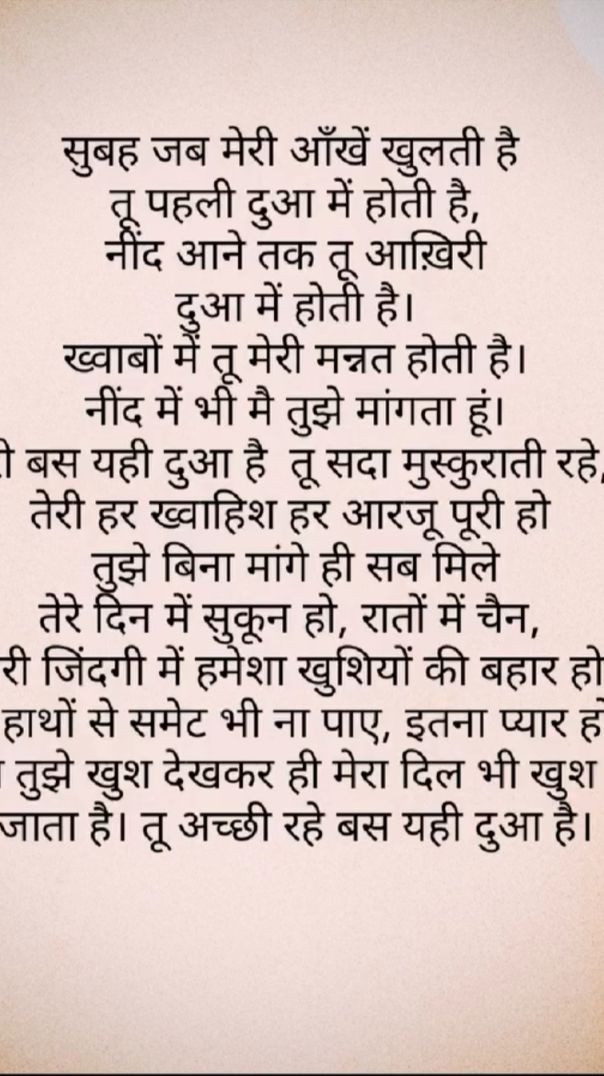 सुबह जब मेरी आँखें खुलती है
तू पहली दुआ में होती है,
नींद आने तक तू आख़िरी
दुआ में होती है।
ख्वाबों में तू मेरी मन्नत होती है।
नींद में भी मै तुझे मांगता हूं।
बस यही दुआ है तू सदा मुस्कुराती रहे,
तेरी हर ख्वाहिश हर आरजू पूरी हो
तुझे बिना मांगे ही सब मिले
तेरे दिन में सुकून हो, रातों में चैन,
जिंदगी में हमेशा खुशियों की बहार हो
हाथों से समेट भी ना पाए, इतना प्यार
तुझे खुश देखकर ही मेरा दिल भी खुश
जाता है। तू अच्छी रहे बस यही दुआ है।